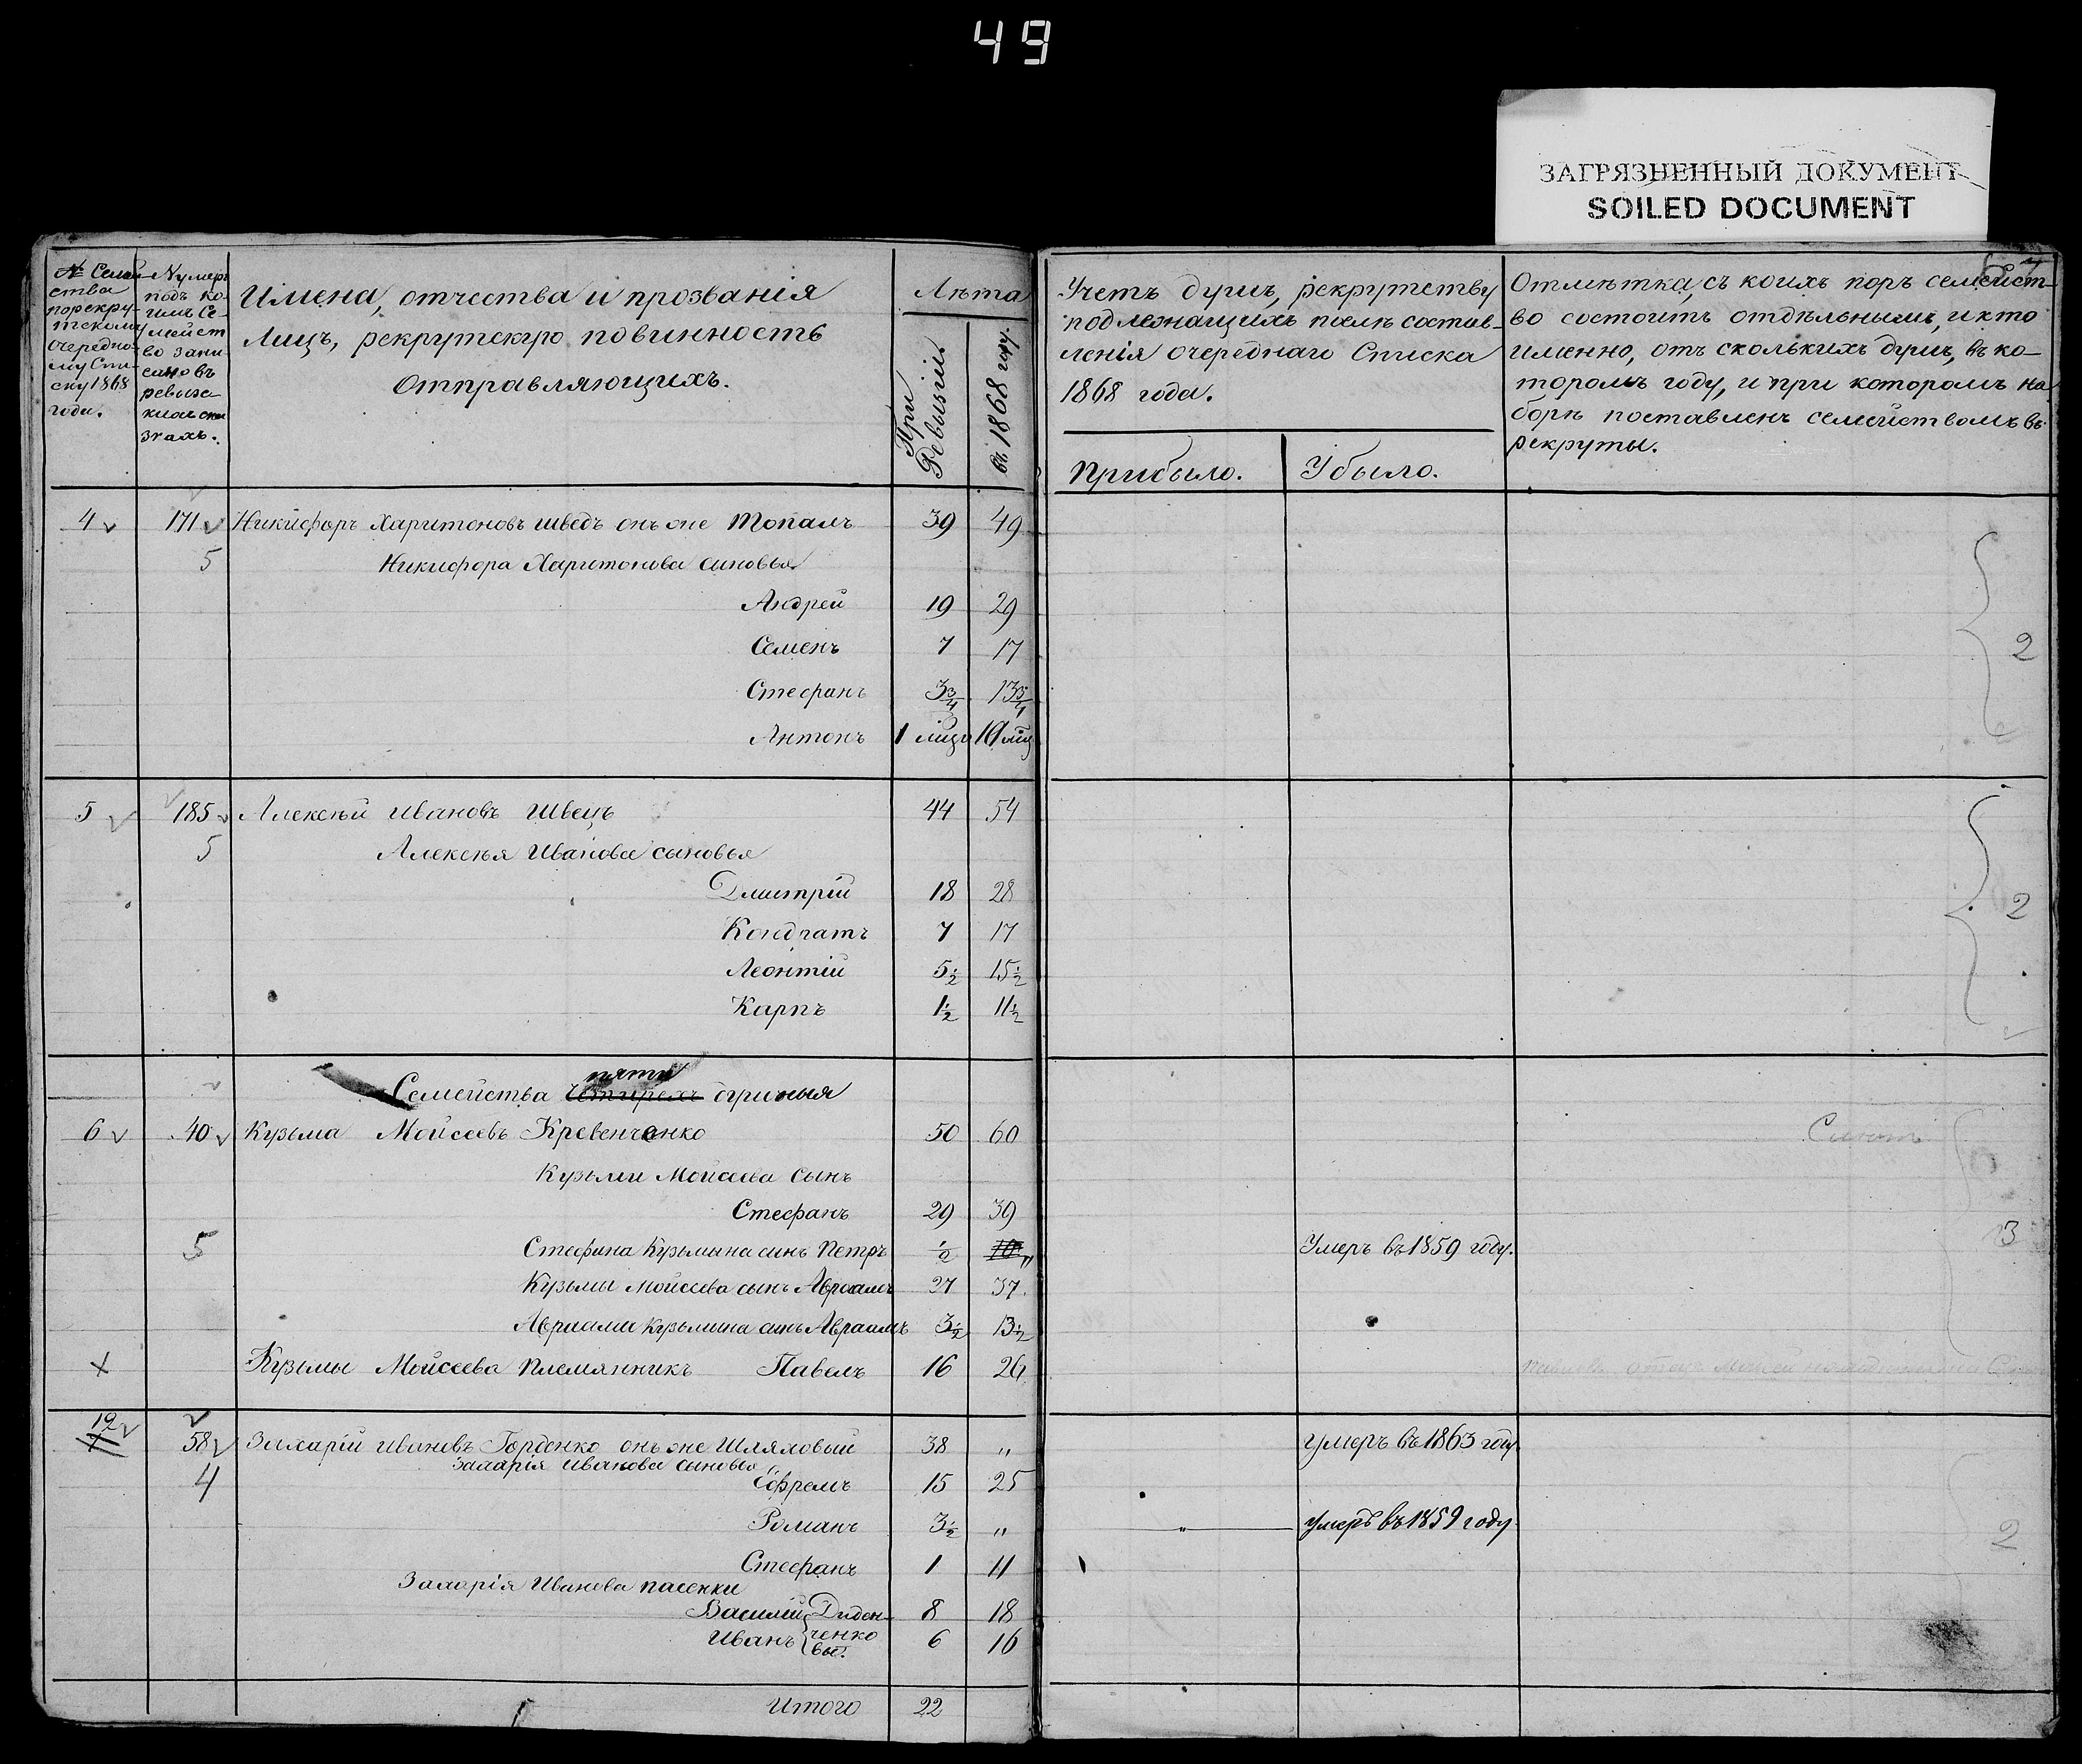 49
ЗАГРЯЗНЕННЫЙ ДОКУМЕНТ
SOILED DOCUMENT
№ Семей-
ства
по рекру-
тскому
очередно-
му Спи-
ску 1868
года.
Нумеръ
подъ ко-
имъ Се-
мейст
во запи
сано въ
ревизс
кихъ ска
зкахъ.
Имена, отчества и прозванія
Лицъ, рекрутскую повинность
отправляющихъ.
Лѣта
При Ревизіи
въ 1868 году.
Учетъ душъ, рекрутству
подлежащихъ послѣ состав-
ленія очереднаго Списка
1868 года.
Прибыло. Убыло.
Отмѣтка, съ коихъ поръ семейст-
во состоитъ отдѣльнымъ, и кто
именно, отъ сколькихъ душъ, въ ко-
торомъ году, и при которомъ на
борѣ поставленъ семействомъ въ
рекруты.
4 171 Никифоръ Харитоновъ Шведъ онъ же Топалъ 39 49
5 Никифора Харитонова сыновья
Андрей 19 29
Семенъ 7 17 2
Стефанъ 3 3/4 13 3/4
Антонъ 1 мѣц 10 мѣц
5 185 Алексѣй Ивановъ Швецъ 44 54
5 Алексѣя Иванова сыновья
Дмитрій 18 28
Кондратъ 7 17 2
Леонтій 5 1/2 15 1/2
Карпъ 1 1/2 11 1/2
пяти
Семейства Четирехъ душныя
6 40 Кузьма Мойсеевъ Кревенченко 50 60
Кузьми Мойсеева сынъ
Стефанъ 29 39
5 Стефана Кузьмина синъ Петръ 1/2 10 „ Умеръ въ 1859 году. 3
Кузьмы Мойсеева сынъ Авраамъ 27 37.
Авраама Кузьмина синъ Авраамъ 3 1/2 13 1/2
х Кузьмы Мойсеева племянникъ Павелъ 16 26
12
7 58 Захарій Ивановъ Горденко онъ же Шляховый 38 „ умеръ въ 1863 году
Захарія Иванова сыновья
4 Ефремъ 15 25
Романъ 3 1/2 „ „ умеръ въ 1859 году. 2
Стефанъ 1 11
Захарія Иванова пасенки
Василій Диден- 8 18
Иванъ ченко 6 16
вы.
Итого 22